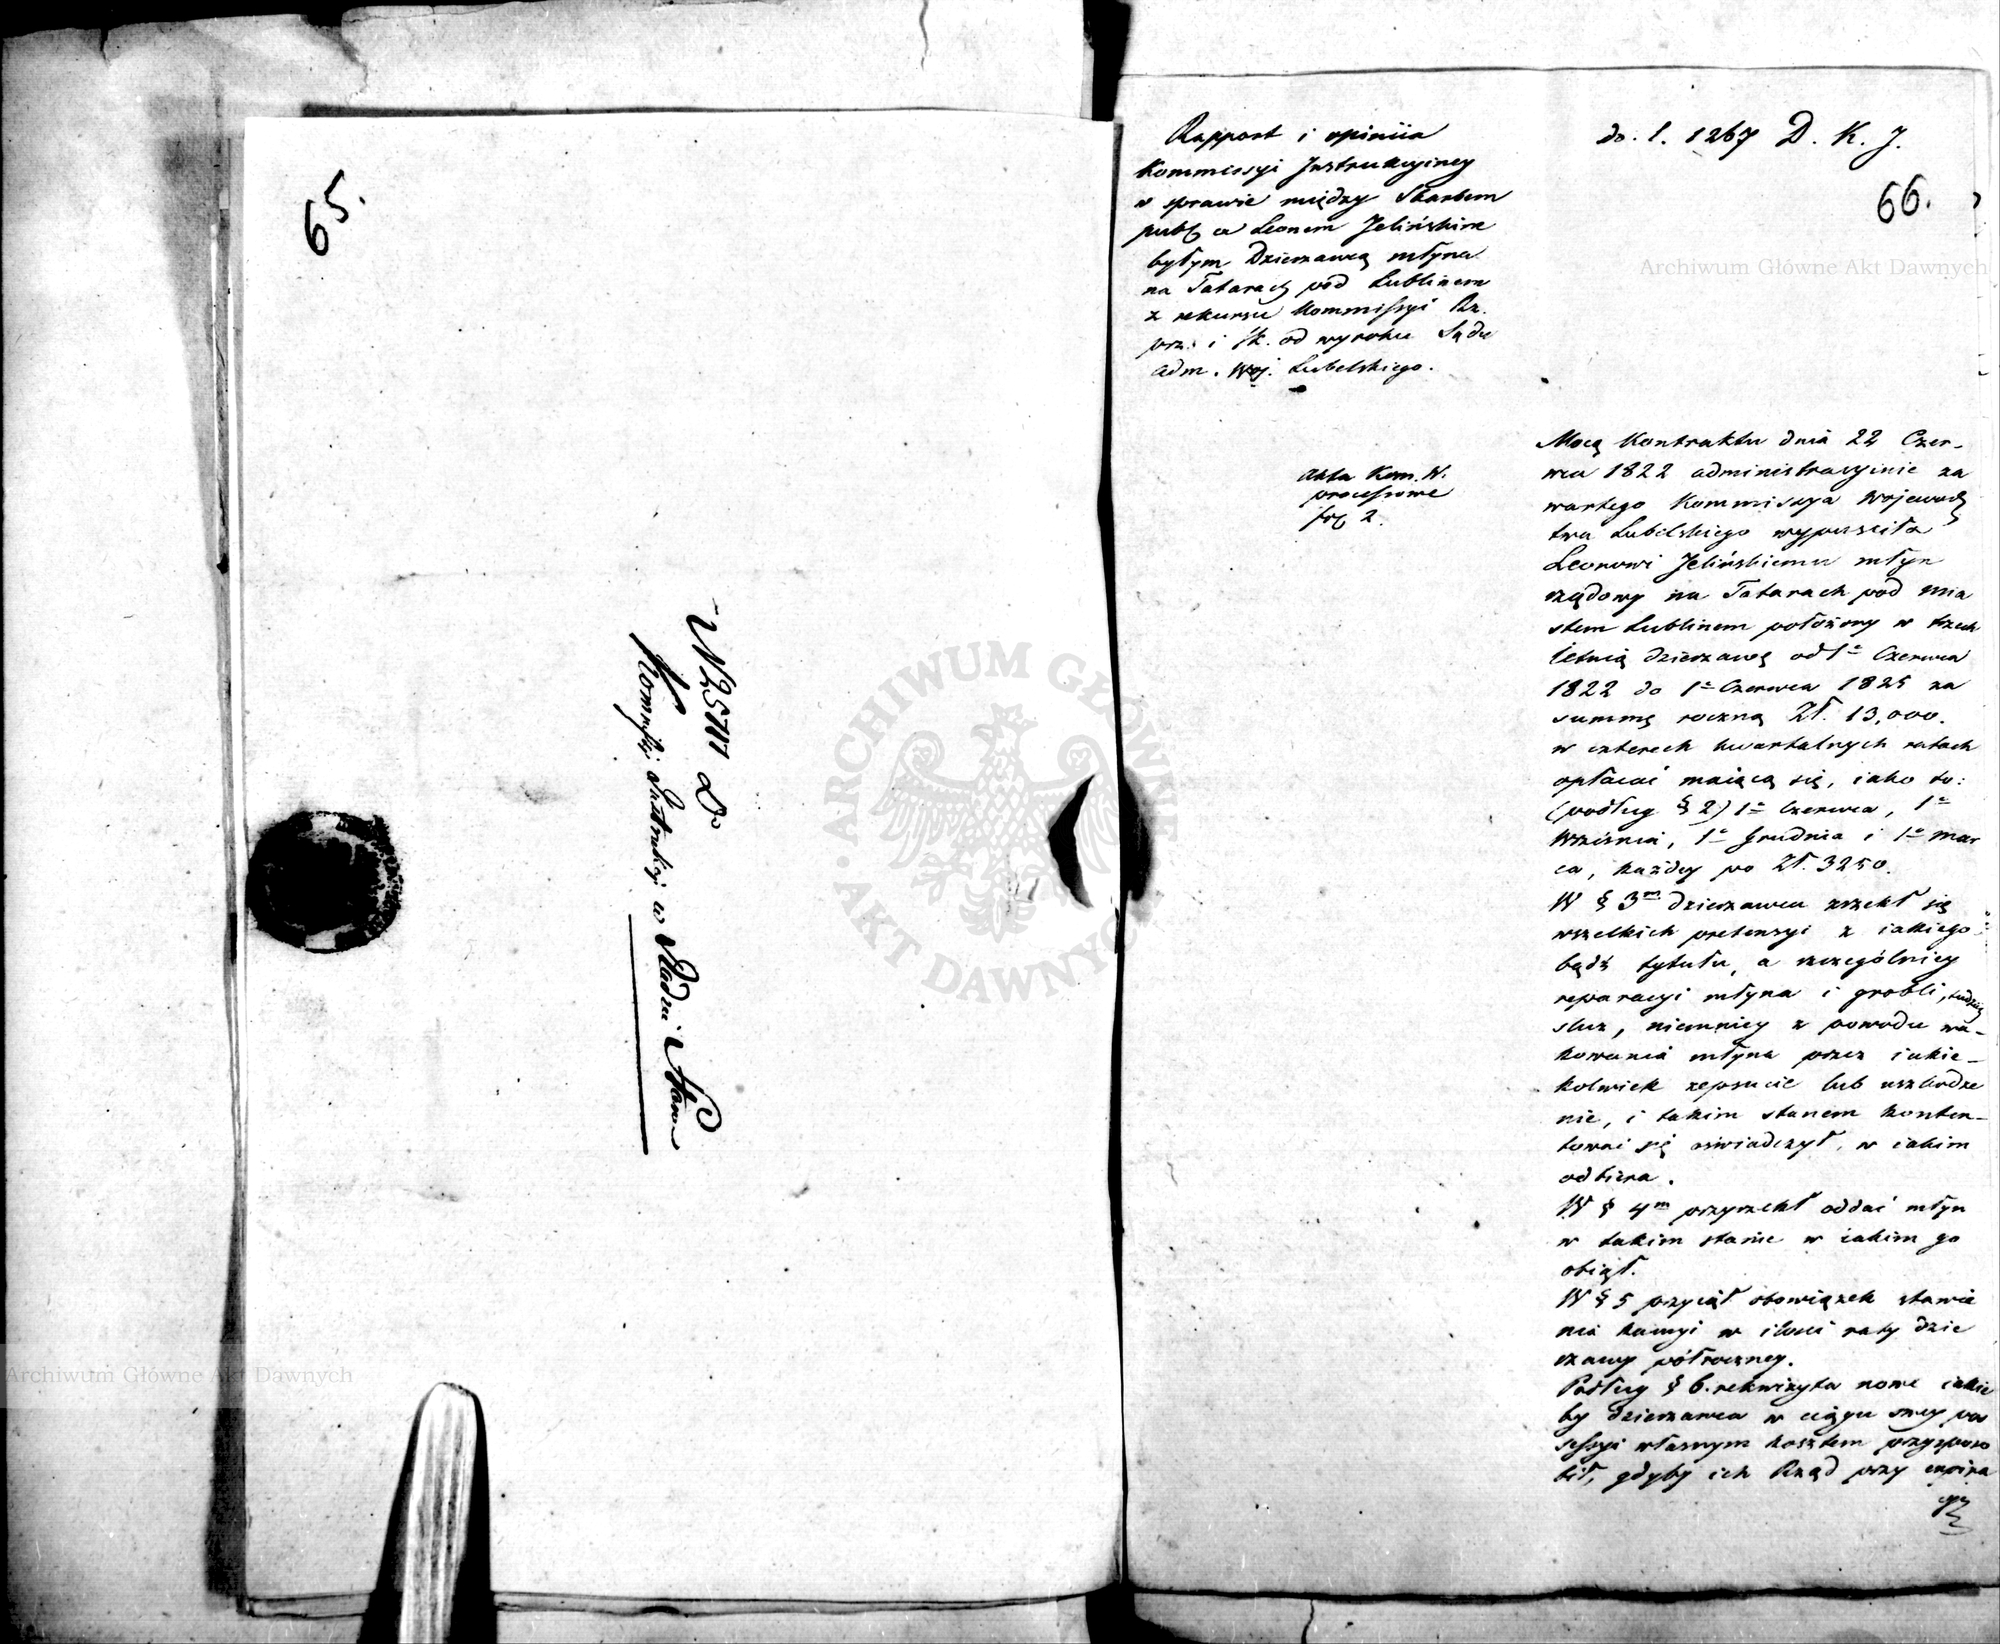 65.
N 25111 Do
Kommissyi Instrukcyi w Radzie Stanu
Rapport i opiniia
Kommissyi Instrukcyiney
w sprawie między Skarbem
publ a Leonem Jelińskim
byłym Dzierzawcą młyna
na Tatarach pod Lublinem
z rekursu Kommissyi Rz.
prz: i Sk. od wyroku Sądu
adm. Woj. Lubelskiego.
do. l. 1267 D. K. J.
66.
Akta Kom. W.
processowe
fol 2.
Mocą Kontraktu dnia 22 Czer-
wca 1822 administracyinie za
wartego Kommissya Wojewodz
twa Lubelskiego wypusciła
Leonowi Jelińskiemu młyn
rządowy na Tatarach pod mia
stem Lublinem położony w trzech
letnią dzierzawę od 1º Czerwca
1822 do 1º Czerwca 1825 za
summę roczną Zł. 13,000.
w czterech kwartalnych ratach
opłacać maiącą się, iako to:
(podług § 2) 1º Czerwca, 1º
Września, 1º Grudnia i 1º Mar
ca, każdey po Zł. 3250.
W § 3m dzierzawca zrzekł się
wszelkich pretensyi z iakiego
bądź tytułu, a szczególniey
reparacyi młyna i grobli, tudzież
sluz, niemniey z powodu wa-
kowania młyna przez iakie-
kolwiek zepsucie lub uszkodze
nie, i takim stanem konten-
tować się oświadczył, w iakim
odbiera.
W § 4m przyrzekł oddać młyn
w takim stanie w iakim go
obiął.
W § 5 przyiął obowiązek stawie
nia kaucyi w ilości raty dzie
rzawy półroczney.
Podług § 6. rekwizyta nowe iakie
by dzierzawca w ciągu swey po
sessyi własnym kosztem przysposo
bił, gdyby ich Rząd przy expira
cyi
Archiwum Główne Akt Dawnych
Archiwum Główne Akt Dawnych
ARCHIWUM GŁÓWNE
AKT DAWNYCH